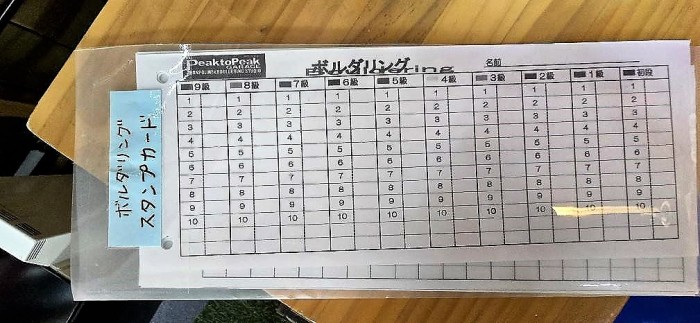 ボルダリング
スタンプカード
PeaktoPeak
GARAGE
ボルダリング
名前
9級 8級 7級 6級 5級 4級 3級 2級 1級 初段
1 1 1 1 1 1 1 1 1 1
2 2 2 2 2 2 2 2 2 2
3 3 3 3 3 3 3 3 3 3
4 4 4 4 4 4 4 4 4 4
5 5 5 5 5 5 5 5 5 5
6 6 6 6 6 6 6 6 6 6
7 7 7 7 7 7 7 7 7 7
8 8 8 8 8 8 8 8 8 8
9 9 9 9 9 9 9 9 9 9
10 10 10 10 10 10 10 10 10 10